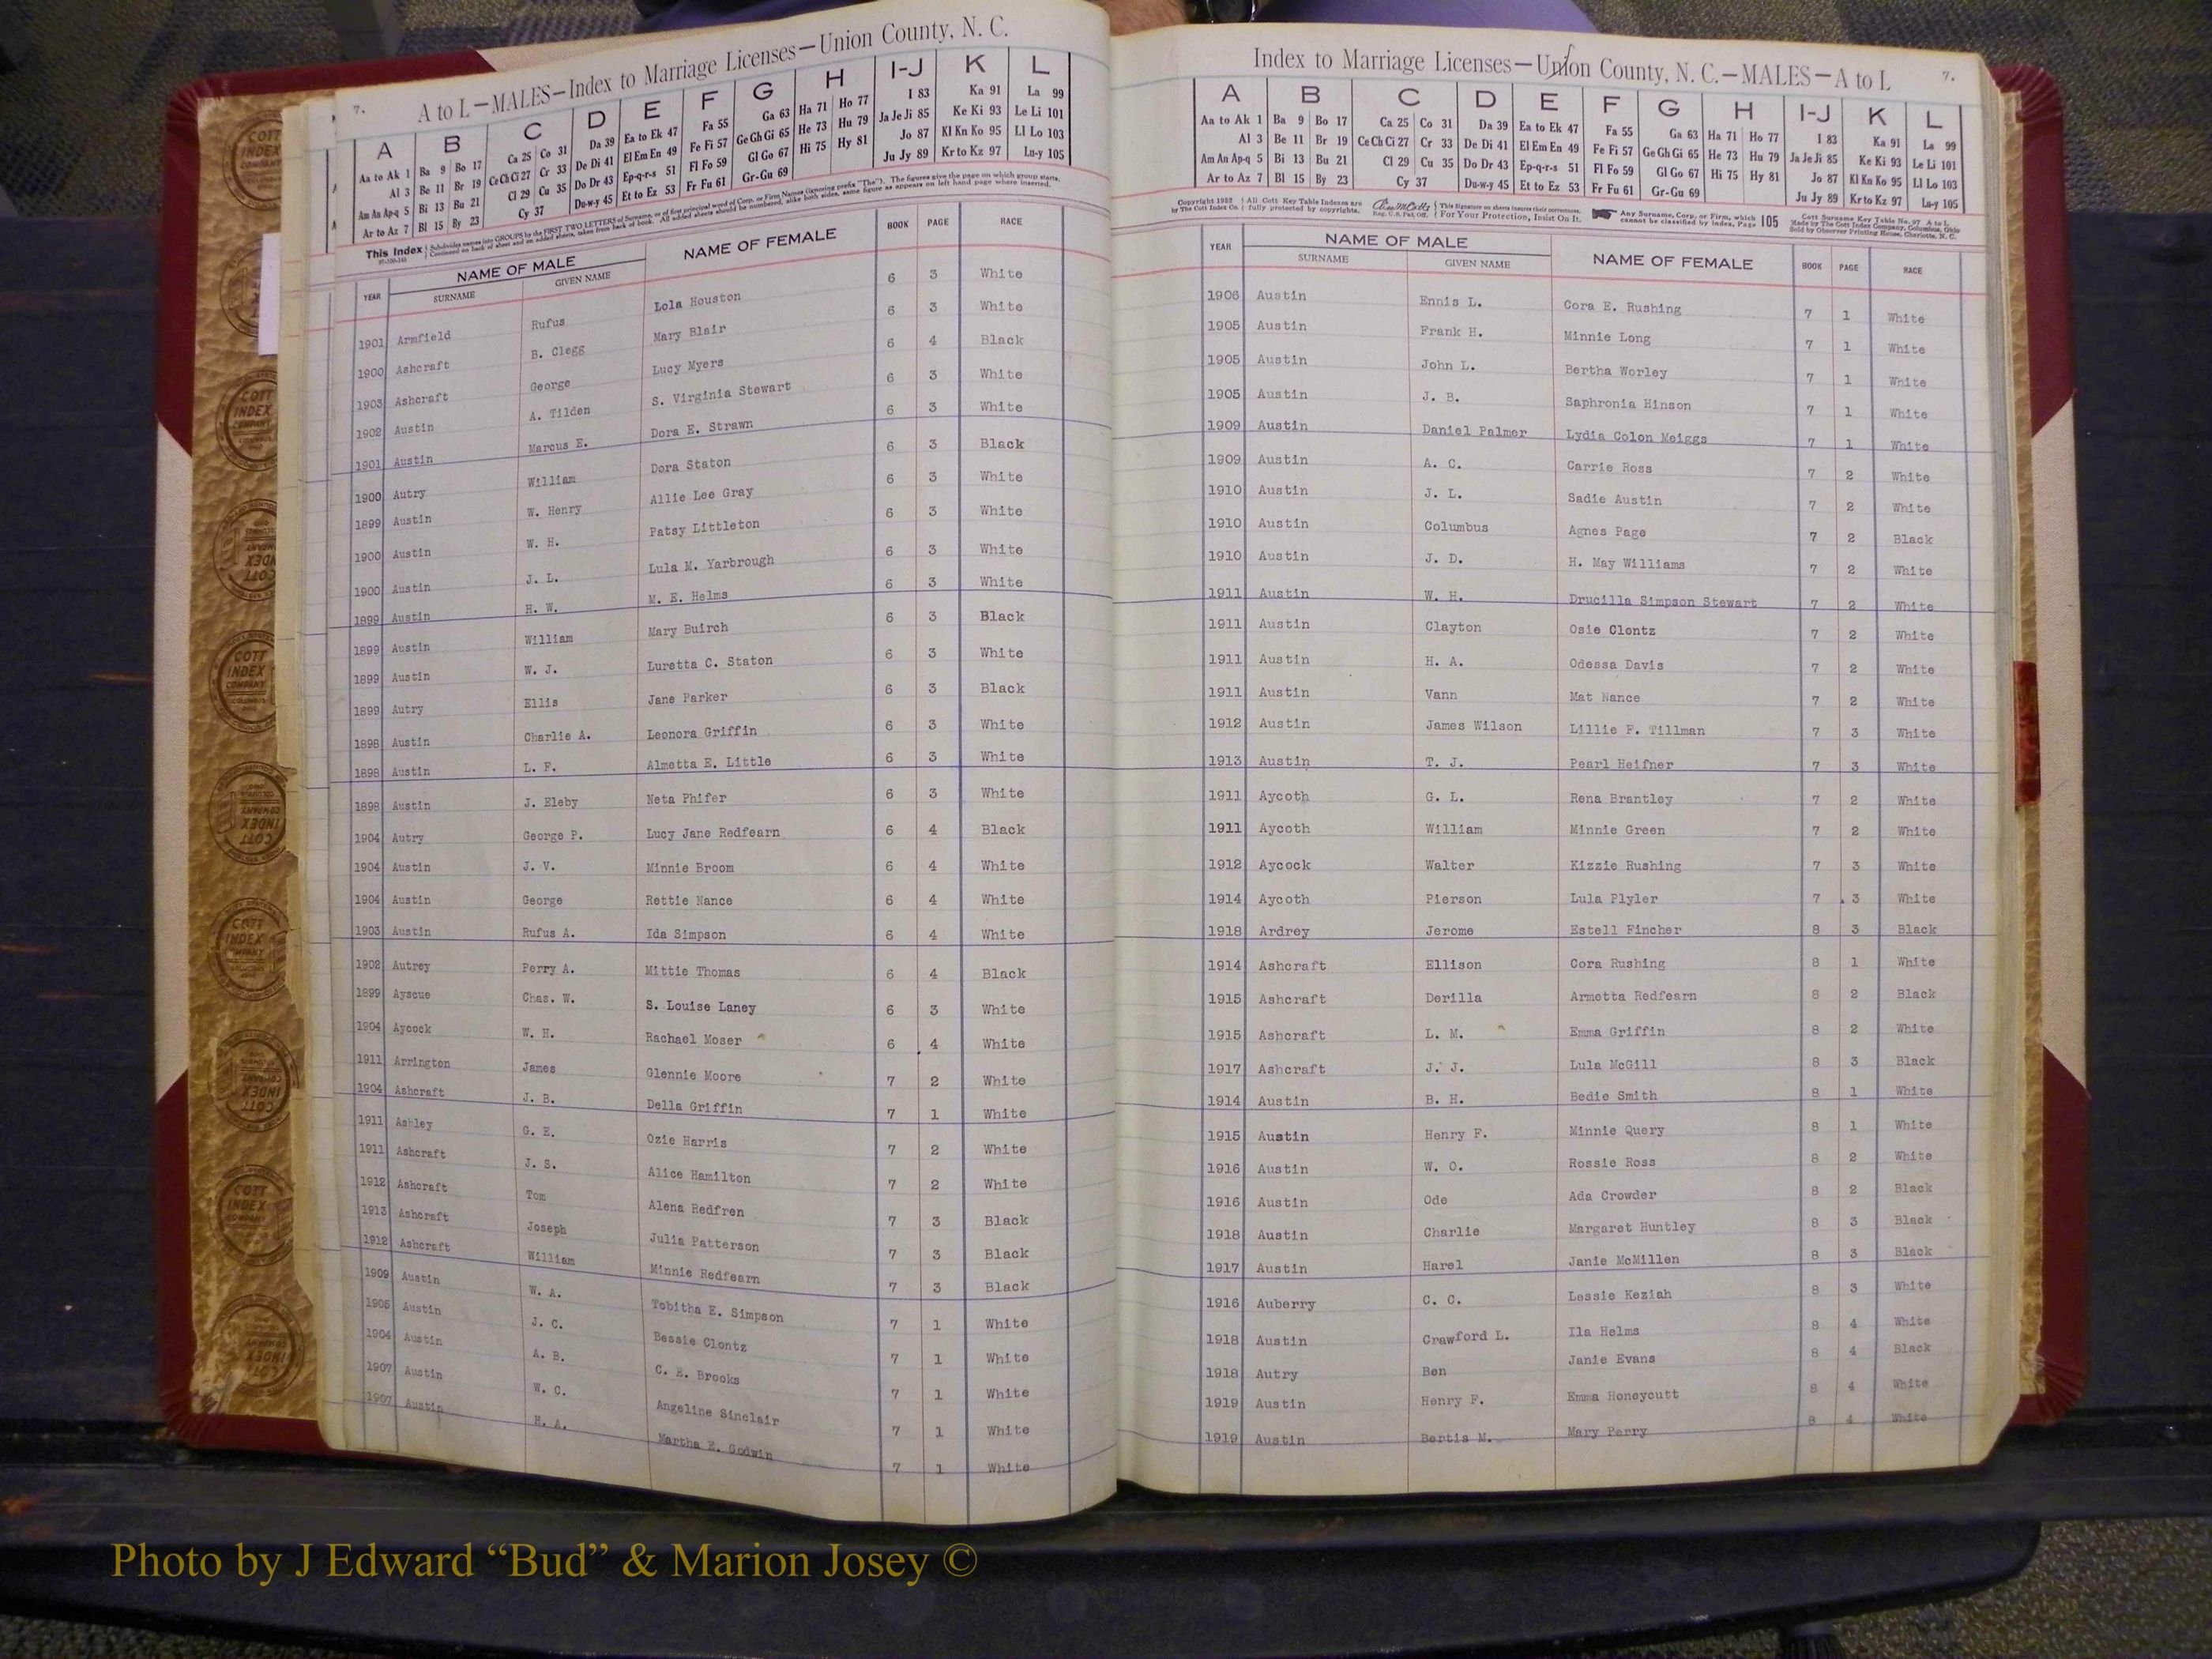 7.
A to L—MALES—Index to Marriage Licenses—Union County, N. C.
A B C D E F G H I-J K L
Aa to Ak 1 Ba 9 Bo 17 Ca 25 Co 31 Da 39 Ea to Ek 47 Fa 55 Ga 63 Ha 71 Ho 77 I 83 Ka 91 La 99
Al 3 Be 11 Br 19 Ce Ch Ci 27 Cr 33 De Di 41 El Em En 49 Fe Fi 57 Ge Gh Gi 65 He 73 Hu 79 Ja Je Ji 85 Ke Ki 93 Le Li 101
Am An Ap-q 5 Bi 13 Bu 21 Cl 29 Cu 35 Do Dr 43 Ep-q-r-s 51 Fl Fo 59 Gl Go 67 Hi 75 Hy 81 Jo 87 Kl Kn Ko 95 Ll Lo 103
Ar to Az 7 Bl 15 By 23 Cy 37 Du-w-y 45 Et to Ez 53 Fr Fu 61 Gr-Gu 69 Ju Jy 89 Kr to Kz 97 Lu-y 105
This Index Subdivides names into GROUPS by the FIRST TWO LETTERS of Surname, or of first principal word of Corp. or Firm Names (ignoring prefix "The"). The figures give the page on which group starts.
Continued on back of sheet and on added sheets, taken from back of book. All added sheets should be numbered, alike both sides, same figure as appears on left hand page where inserted.
YEAR NAME OF MALE NAME OF FEMALE BOOK PAGE RACE
SURNAME GIVEN NAME
1901 Armfield Rufus Lola Houston 6 3 White
1900 Ashcraft B. Clegg Mary Blair 6 3 White
1903 Ashcraft George Lucy Myers 6 4 Black
1902 Austin A. Tilden S. Virginia Stewart 6 3 White
1901 Austin Marcus E. Dora E. Strawn 6 3 White
1900 Autry William Dora Staton 6 3 Black
1899 Austin W. Henry Allie Lee Gray 6 3 White
1900 Austin W. H. Patsy Littleton 6 3 White
1900 Austin J. L. Lula M. Yarbrough 6 3 White
1899 Austin H. W. M. E. Helms 6 3 White
1899 Austin William Mary Buirch 6 3 Black
1899 Austin W. J. Luretta C. Staton 6 3 White
1899 Autry Ellis Jane Parker 6 3 Black
1898 Austin Charlie A. Leonora Griffin 6 3 White
1898 Austin L. F. Almetta E. Little 6 3 White
1898 Austin J. Eleby Neta Phifer 6 3 White
1904 Autry George P. Lucy Jane Redfearn 6 4 Black
1904 Austin J. V. Minnie Broom 6 4 White
1904 Austin George Rettie Nance 6 4 White
1903 Austin Rufus A. Ida Simpson 6 4 White
1902 Autrey Perry A. Mittie Thomas 6 4 Black
1899 Ayscue Chas. W. S. Louise Laney 6 3 White
1904 Aycock W. H. Rachael Moser 6 4 White
1911 Arrington James Glennie Moore 7 2 White
1904 Ashcraft J. B. Della Griffin 7 1 White
1911 Ashley G. E. Ozie Harris 7 2 White
1911 Ashcraft J. S. Alice Hamilton 7 2 White
1912 Ashcraft Tom Alena Redfren 7 3 Black
1913 Ashcraft Joseph Julia Patterson 7 3 Black
1912 Ashcraft William Minnie Redfearn 7 3 Black
1909 Austin W. A. Tobitha E. Simpson 7 1 White
1905 Austin J. C. Bessie Clontz 7 1 White
1904 Austin A. B. C. E. Brooks 7 1 White
1907 Austin W. C. Angeline Sinclair 7 1 White
1907 Austin H. A. Martha E. Godwin 7 1 White
Index to Marriage Licenses—Union County, N. C.—MALES—A to L 7.
A B C D E F G H I-J K L
Aa to Ak 1 Ba 9 Bo 17 Ca 25 Co 31 Da 39 Ea to Ek 47 Fa 55 Ga 63 Ha 71 Ho 77 I 83 Ka 91 La 99
Al 3 Be 11 Br 19 Ce Ch Ci 27 Cr 33 De Di 41 El Em En 49 Fe Fi 57 Ge Gh Gi 65 He 73 Hu 79 Ja Je Ji 85 Ke Ki 93 Le Li 101
Am An Ap-q 5 Bi 13 Bu 21 Cl 29 Cu 35 Do Dr 43 Ep-q-r-s 51 Fl Fo 59 Gl Go 67 Hi 75 Hy 81 Jo 87 Kl Kn Ko 95 Ll Lo 103
Ar to Az 7 Bl 15 By 23 Cy 37 Du-w-y 45 Et to Ez 53 Fr Fu 61 Gr-Gu 69 Ju Jy 89 Kr to Kz 97 Lu-y 105
All Cott Key Table Indexes are This Signature on sheets insures their correctness. Any Surname, Corp. or Firm, which 105
by The Cott Index Co. fully protected by copyrights. Reg. U.S. Pat. Off. For Your Protection, Insist On It. cannot be classified by index, Page
Made by The Cott Index Company, Columbus, Ohio
Sold by Observer Printing House, Charlotte, N. C.
YEAR NAME OF MALE NAME OF FEMALE BOOK PAGE RACE
SURNAME GIVEN NAME
1906 Austin Ennis L. Cora E. Rushing 7 1 White
1905 Austin Frank H. Minnie Long 7 1 White
1905 Austin John L. Bertha Worley 7 1 White
1905 Austin J. B. Saphronia Hinson 7 1 White
1909 Austin Daniel Palmer Lydia Colon Meiggs 7 1 White
1909 Austin A. C. Carrie Ross 7 2 White
1910 Austin J. L. Sadie Austin 7 2 White
1910 Austin Columbus Agnes Page 7 2 Black
1910 Austin J. D. H. May Williams 7 2 White
1911 Austin W. H. Drucilla Simpson Stewart 7 2 White
1911 Austin Clayton Osie Clontz 7 2 White
1911 Austin H. A. Odessa Davis 7 2 White
1911 Austin Vann Mat Nance 7 2 White
1912 Austin James Wilson Lillie F. Tillman 7 3 White
1913 Austin T. J. Pearl Heifner 7 3 White
1911 Aycoth G. L. Rena Brantley 7 2 White
1911 Aycoth William Minnie Green 7 2 White
1912 Aycock Walter Kizzie Rushing 7 3 White
1914 Aycoth Pierson Lula Plyler 7 3 White
1918 Ardrey Jerome Estell Fincher 8 3 Black
1914 Ashcraft Ellison Cora Rushing 8 1 White
1915 Ashcraft Derilla Armetta Redfearn 8 2 Black
1915 Ashcraft L. M. Emma Griffin 8 2 White
1917 Ashcraft J. J. Lula McGill 8 3 Black
1914 Austin B. H. Bedie Smith 8 1 White
1915 Austin Henry F. Minnie Query 8 1 White
1916 Austin W. O. Rossie Ross 8 2 White
1916 Austin Ode Ada Crowder 8 2 Black
1918 Austin Charlie Margaret Huntley 8 3 Black
1917 Austin Harel Janie McMillen 8 3 Black
1916 Auberry C. C. Lessie Keziah 8 3 White
1918 Austin Crawford L. Ila Helms 8 4 White
1918 Autry Ben Janie Evans 8 4 Black
1919 Austin Henry F. Emma Honeycutt 8 4 White
1919 Austin Bertis M. Mary Perry 8 4 White
COTT INDEX COMPANY
Photo by J Edward “Bud” & Marion Josey ©